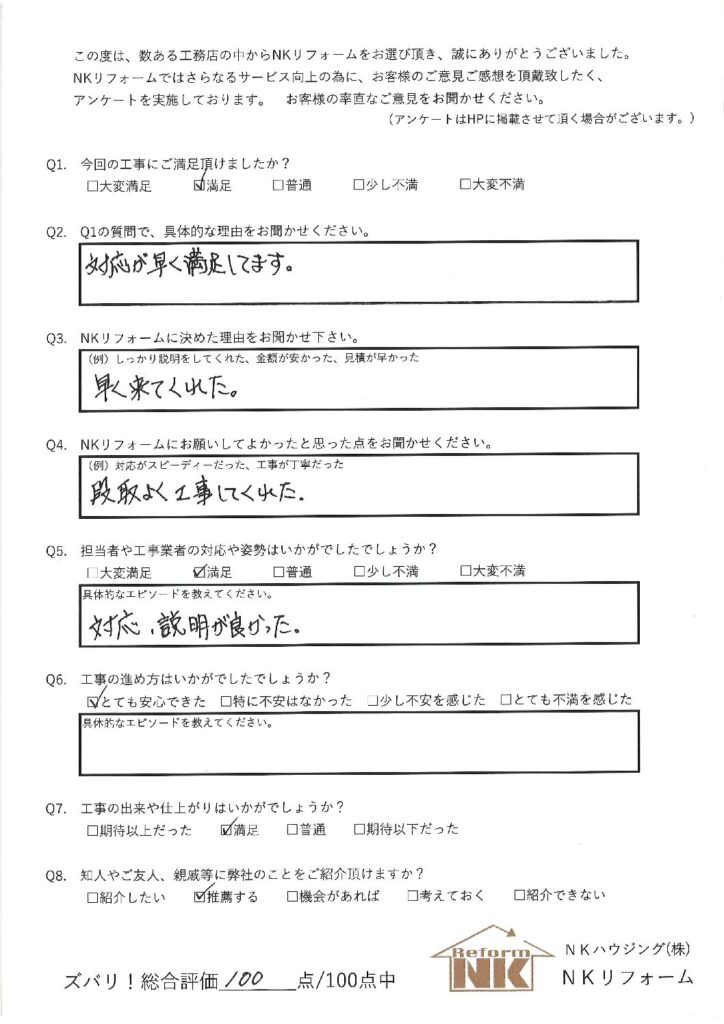 この度は、数ある工務店の中からNKリフォームをお選び頂き、誠にありがとうございました。
NKリフォームではさらなるサービス向上の為に、お客様のご意見ご感想を頂戴致したく、
アンケートを実施しております。　お客様の率直なご意見をお聞かせください。
（アンケートはHPに掲載させて頂く場合がございます。）
Q1. 今回の工事にご満足頂けましたか？
□大変満足 ☑満足 □普通 □少し不満 □大変不満
Q2. Q1の質問で、具体的な理由をお聞かせください。
対応が早く満足してます。
Q3. NKリフォームに決めた理由をお聞かせ下さい。
（例）しっかり説明をしてくれた、金額が安かった、見積が早かった
早く来てくれた。
Q4. NKリフォームにお願いしてよかったと思った点をお聞かせください。
（例）対応がスピーディーだった、工事が丁寧だった
段取よく工事してくれた.
Q5. 担当者や工事業者の対応や姿勢はいかがでしたでしょうか？
□大変満足 ☑満足 □普通 □少し不満 □大変不満
具体的なエピソードを教えてください。
対応、説明が良かった。
Q6. 工事の進め方はいかがでしたでしょうか？
☑とても安心できた □特に不安はなかった □少し不安を感じた □とても不満を感じた
具体的なエピソードを教えてください。
Q7. 工事の出来や仕上がりはいかがでしょうか？
□期待以上だった ☑満足 □普通 □期待以下だった
Q8. 知人やご友人、親戚等に弊社のことをご紹介頂けますか？
□紹介したい ☑推薦する □機会があれば □考えておく □紹介できない
Reform
NK
NKハウジング(株)
NKリフォーム
ズバリ！総合評価 100 点/100点中